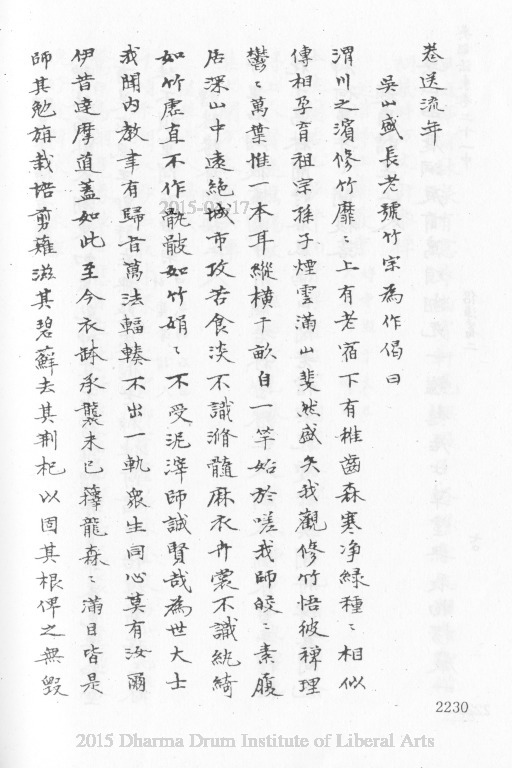 巷送流年
吳山盛長老號竹宗為作偈曰
渭川之濱修竹靡〻上有老宿下有稚齒森寒淨綠種〻相似
傳相孕育祖宗孫子煙雲滿山斐然盛矣我觀修竹悟彼禪理
鬱〻萬葉惟一本耳縱橫千畝自一竿始於嗟我師皎〻素履
居深山中遠絕城市攻苦食淡不識滫髓麻衣卉裳不識紈綺
如竹虛直不作骩骳如竹娟〻不受泥滓師誠賢哉為世大士
我聞內教事有歸旨萬法輻輳不出一軌眾生同心莫有汝爾
伊昔達摩道蓋如此至今衣缽承襲未已籜龍森〻滿目皆是
師其勉旃栽培剪薙滋其碧蘚去其荆杞以固其根俾之無毀
2230
2015-04-17
2015 Dharma Drum Institute of Liberal Arts